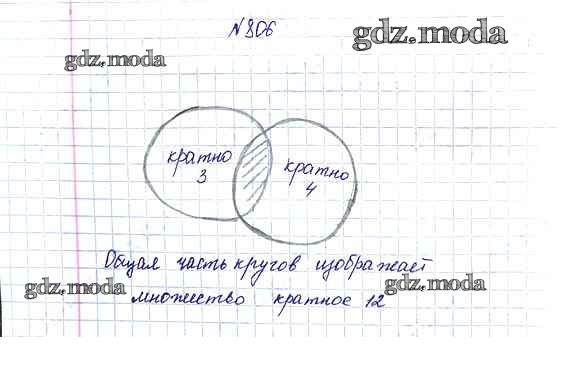 N 806
gdz.moda
gdz.moda
кратно
3
кратно
4
Общая часть кругов изображает
gdz.moda
gdz.moda
множество кратное 12